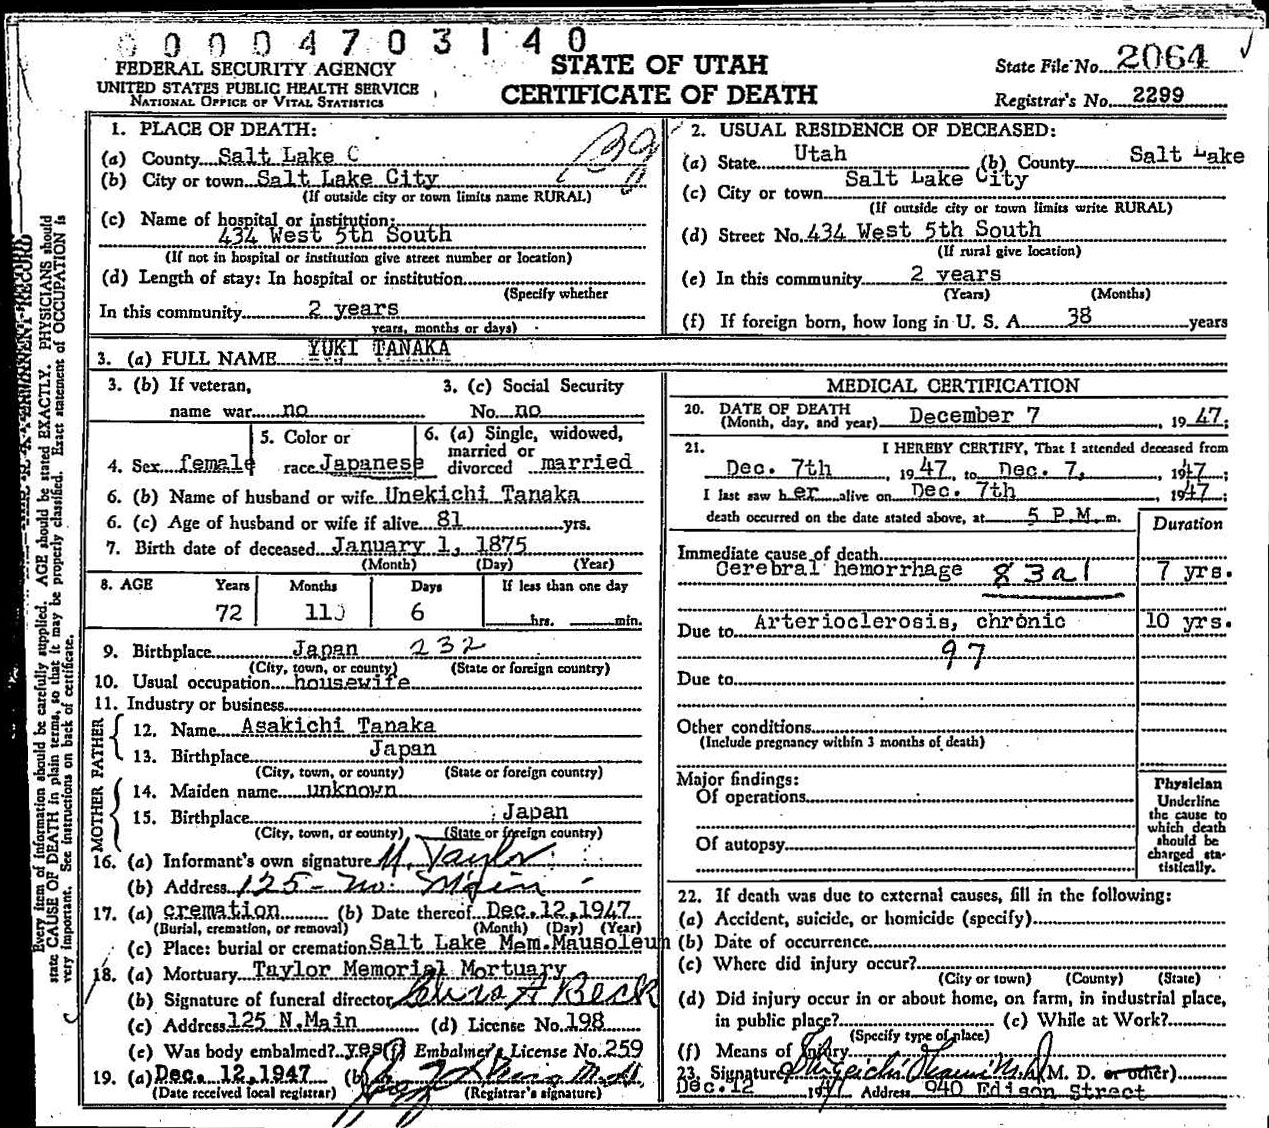 0 0 0 0 4 7 0 3 1 4 0
FEDERAL SECURITY AGENCY
UNITED STATES PUBLIC HEALTH SERVICE
NATIONAL OFFICE OF VITAL STATISTICS
STATE OF UTAH
CERTIFICATE OF DEATH
State File No. 2064
Registrar's No. 2299
1. PLACE OF DEATH:
(a) County Salt Lake C
(b) City or town Salt Lake City
(If outside city or town limits name RURAL)
(c) Name of hospital or institution:
434 West 5th South
(If not in hospital or institution give street number or location)
(d) Length of stay: In hospital or institution
(Specify whether
In this community 2 years
years, months or days)
2. USUAL RESIDENCE OF DECEASED:
(a) State Utah (b) County Salt Lake
(c) City or town Salt Lake City
(If outside city or town limits write RURAL)
(d) Street No. 434 West 5th South
(If rural give location)
(e) In this community 2 years
(Years) (Months)
(f) If foreign born, how long in U. S. A. 38 years
3. (a) FULL NAME YUKI TANAKA
3. (b) If veteran, name war no
3. (c) Social Security No. no
4. Sex female
5. Color or race Japanese
6. (a) Single, widowed, married or divorced married
6. (b) Name of husband or wife Unekichi Tanaka
6. (c) Age of husband or wife if alive 81 yrs.
7. Birth date of deceased January 1, 1875
(Month) (Day) (Year)
8. AGE Years Months Days If less than one day
72 11 6 hrs. min.
9. Birthplace Japan 232
(City, town, or county) (State or foreign country)
10. Usual occupation housewife
11. Industry or business
FATHER
12. Name Asakichi Tanaka
13. Birthplace Japan
(City, town, or county) (State or foreign country)
MOTHER
14. Maiden name unknown
15. Birthplace Japan
(City, town, or county) (State or foreign country)
16. (a) Informant's own signature M. Taylor
(b) Address 125 - No. Main
17. (a) cremation (b) Date thereof Dec. 12, 1947
(Burial, cremation, or removal) (Month) (Day) (Year)
(c) Place: burial or cremation Salt Lake Mem. Mausoleum
18. (a) Mortuary Taylor Memorial Mortuary
(b) Signature of funeral director A Beck
(c) Address 125 N.Main (d) License No. 198
(e) Was body embalmed? yes (f) Embalmer's License No. 259
19. (a) Dec. 12, 1947 (b)
(Date received local registrar) (Registrar's signature)
MEDICAL CERTIFICATION
20. DATE OF DEATH
(Month, day, and year) December 7, 1947;
21. I HEREBY CERTIFY, That I attended deceased from
Dec. 7th, 1947, to Dec. 7, 1947;
I last saw her alive on Dec. 7th, 1947;
death occurred on the date stated above, at 5 P.M. m.
Duration
Immediate cause of death
Cerebral hemorrhage 83a1 7 yrs.
Due to Arterioclerosis, chronic 10 yrs.
97
Due to
Other conditions
(Include pregnancy within 3 months of death)
Major findings:
Of operations
Of autopsy
Physician
Underline
the cause to
which death
should be
charged sta-
tistically.
22. If death was due to external causes, fill in the following:
(a) Accident, suicide, or homicide (specify)
(b) Date of occurrence
(c) Where did injury occur?
(City or town) (County) (State)
(d) Did injury occur in or about home, on farm, in industrial place,
in public place? (e) While at Work?
(Specify type of place)
(f) Means of Injury
23. Signature (M. D. or other)
Dec. 12 1947 Address 940 Edison Street
Every item of information should be carefully supplied. AGE should be stated EXACTLY. PHYSICIANS should
state CAUSE OF DEATH in plain terms, so that it may be properly classified. Exact statement of OCCUPATION is
very important. See instructions on back of certificate.